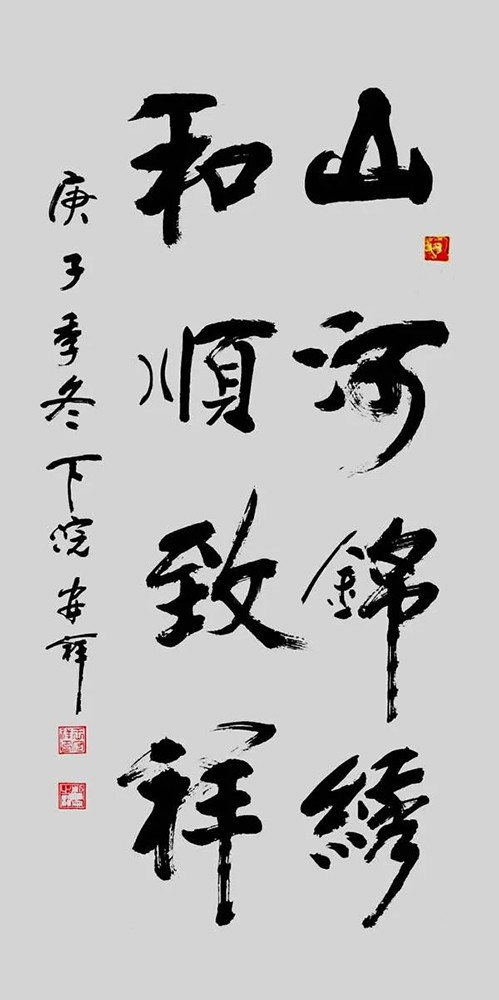 山河錦綉
和順致祥
庚子季冬下浣安祥